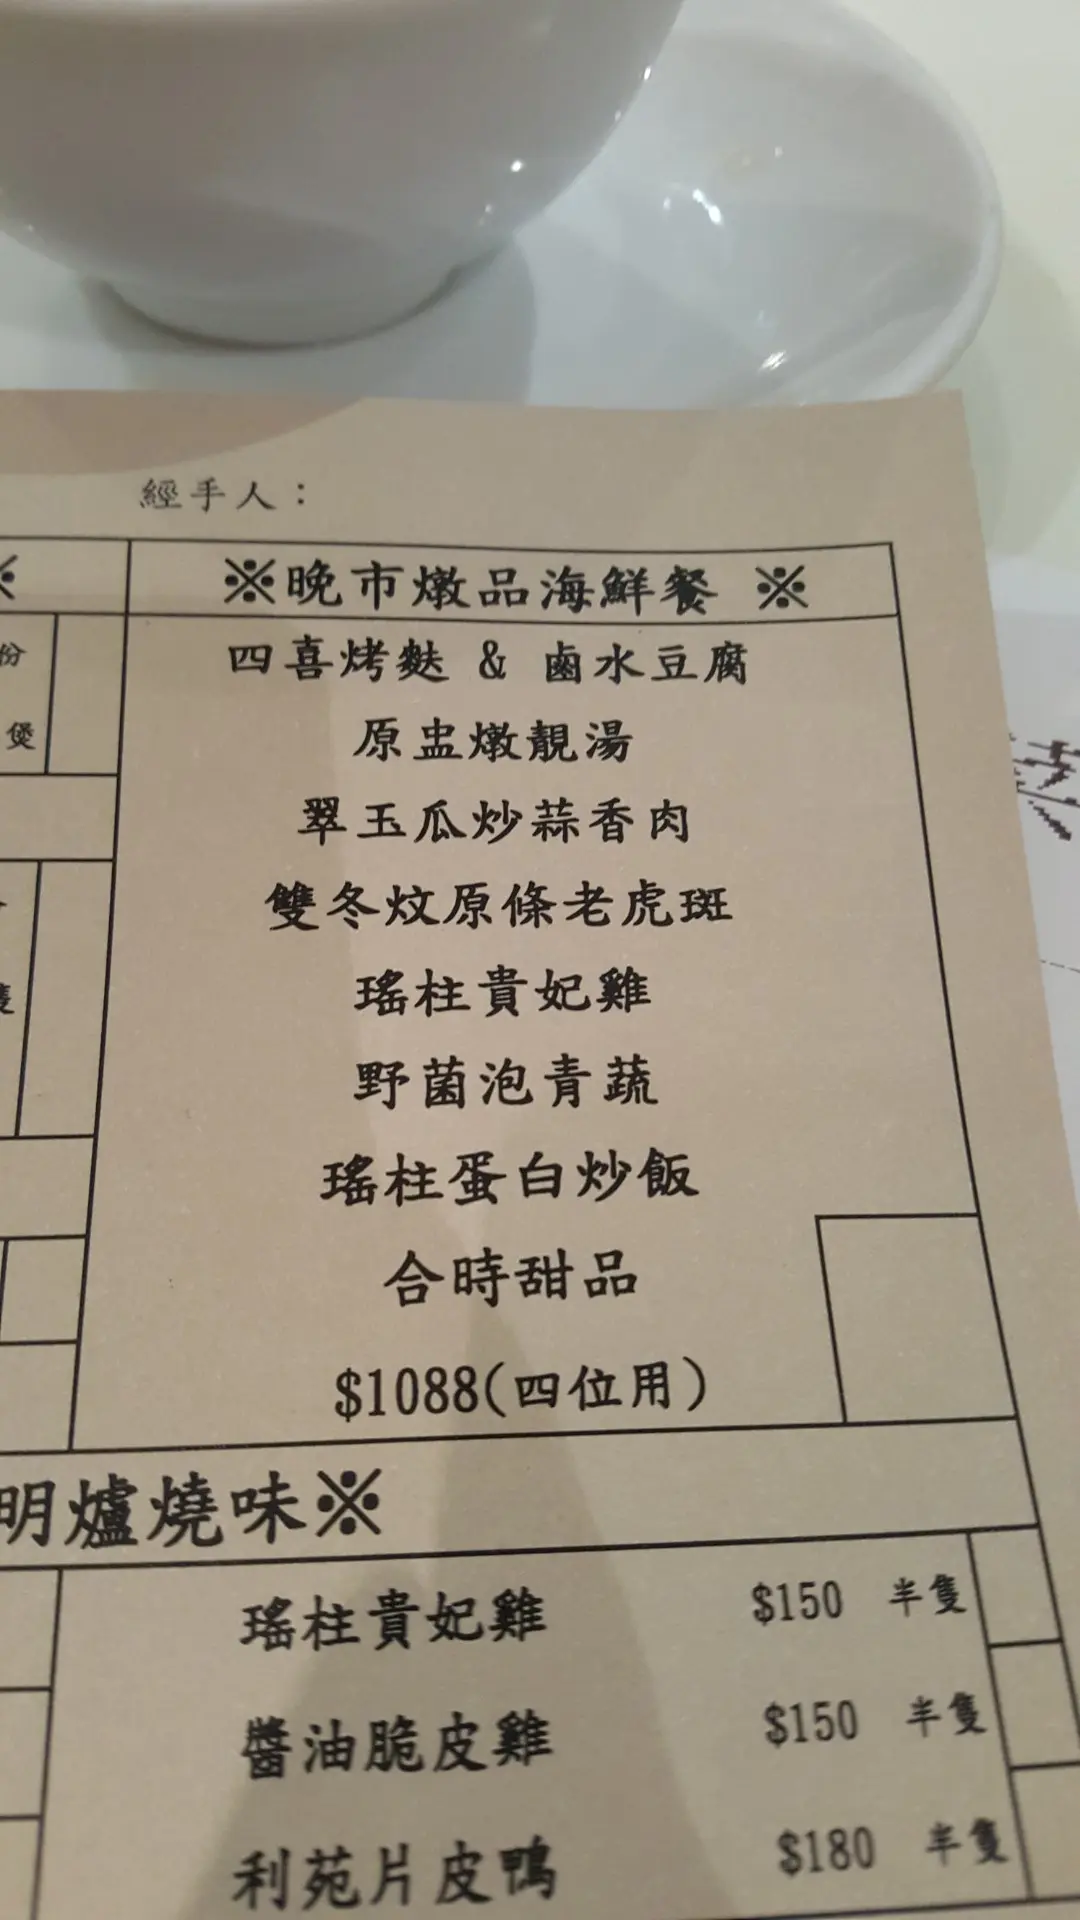 經手人：
※晚市燉品海鮮餐 ※
四喜烤麩 & 鹵水豆腐
原盅燉靚湯
翠玉瓜炒蒜香肉
雙冬炆原條老虎斑
瑤柱貴妃雞
野菌泡青蔬
瑤柱蛋白炒飯
合時甜品
$1088(四位用)
份
煲
隻
明爐燒味※
瑤柱貴妃雞 $150 半隻
醬油脆皮雞 $150 半隻
利苑片皮鴨 $180 半隻